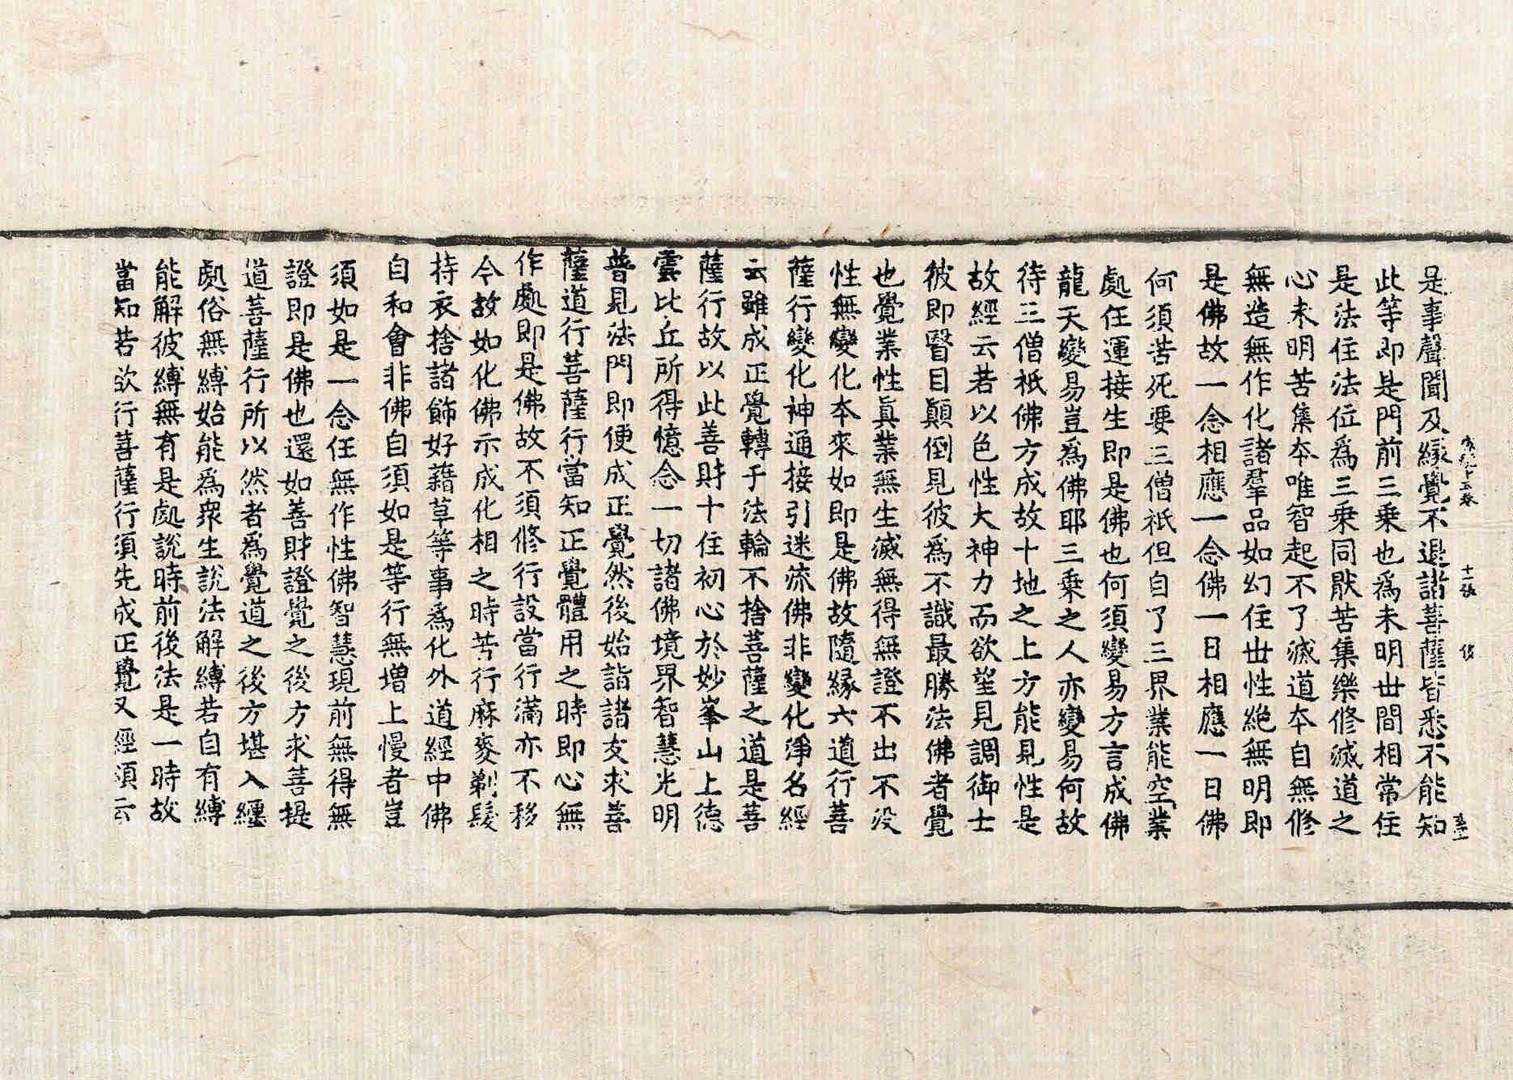 是事聲聞及緣覺不退諸菩薩皆悉不能知
此等即是門前三乘也爲未明世間相常住
是法住法位爲三乘同猒苦集樂修滅道之
心未明苦集本唯智起不了滅道本自無修
無造無作化諸羣品如幻住世性絶無明即
是佛故一念相應一念佛一日相應一日佛
何須苦死要三僧祇但自了三界業能空業
處任運接生即是佛也何須變易方言成佛
龍天變易豈爲佛耶三乘之人亦變易何故
待三僧祇佛方成故十地之上方能見性是
故經云若以色性大神力而欲望見調御士
彼即瞖目顚倒見彼爲不識最勝法佛者覺
也覺業性眞業無生滅無得無證不出不没
性無變化本來如即是佛故隨緣六道行菩
薩行變化神通接引迷流佛非變化淨名經
云雖成正覺轉于法輪不捨菩薩之道是菩
薩行故以此善財十住初心於妙峯山上德
雲比丘所得憶念一切諸佛境界智慧光明
普見法門即便成正覺然後始詣諸友求善
薩道行菩薩行當知正覺體用之時即心無
作處即是佛故不須修行設當行滿亦不移
今故如化佛示成化相之時苦行麻麥剃髮
持衣捨諸飾好藉草等事爲化外道經中佛
自和會非佛自須如是等行無增上慢者豈
須如是一念任無作性佛智慧現前無得無
證即是佛也還如善財證覺之後方求菩提
道菩薩行所以然者爲覺道之後方堪入纏
處俗無縛始能爲衆生說法解縛若自有縛
能解彼縛無有是處說時前後法是一時故
當知若欲行菩薩行須先成正覺又經頌云